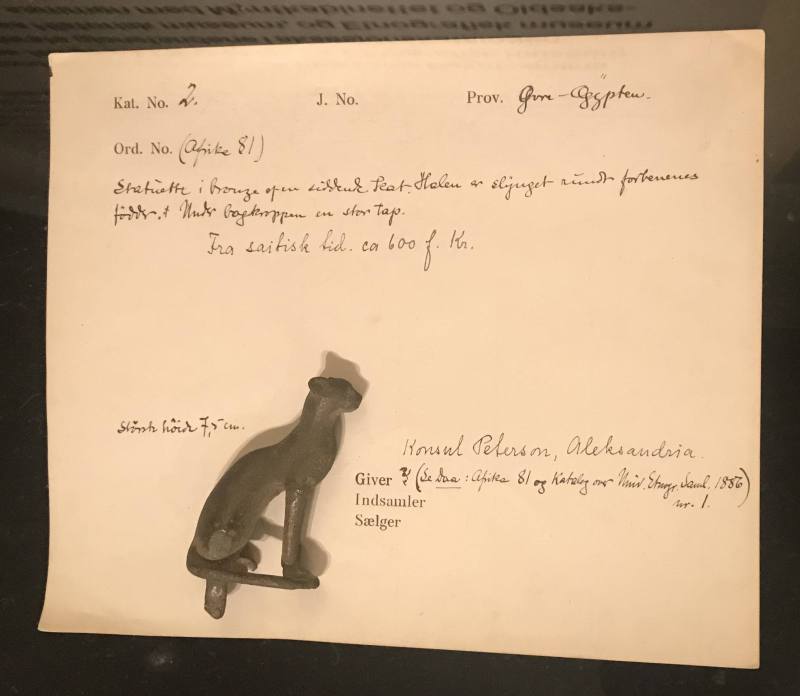 Kat. No. 2. J. No. Prov. Øvre-Ægÿpten.
Ord. No. (Afrika 81)
Statuette i bronze af en siddende kat. Halen er slÿnget rundt forbenenes
födder. Under bagkroppen en stor tap.
Fra saitisk tid. ca 600 f. Kr.
Störste höide 7,5 cm.
Konsul Peterson, Aleksandria.
Giver ? (Se Daa: Afrika 81 og Katalog over Univ. Etnogr. Saml. 1886)
nr. 1.
Indsamler
Sælger